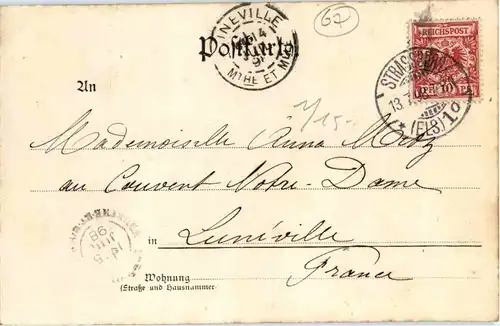 LUNEVILLE
67
Postkarte
REICHSPOST
MTHE ET M
STRASSBURG
10 PF 10
13.7.98
*(ELS)1c
An
Mademoiselle Anna Metz
au Couvent Notre-Dame
in Lunéville
France
98
JUIL
14
Wohnung
(Straße und Hausnummer